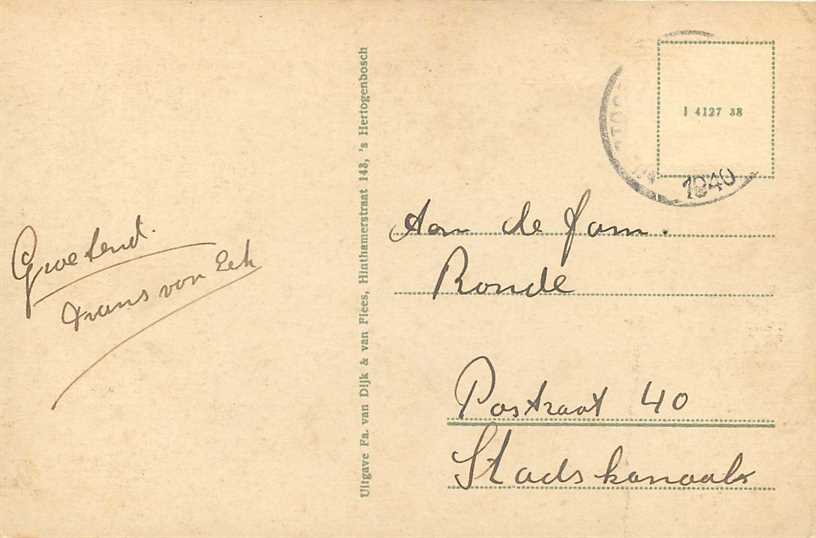 Groetend.
Frans van Eck
Uitgave Fa. van Dijk & van Flees, Hinthamerstraat 143, 's Hertogenbosch
I 4127 38
1940
Aan de fam.
Ronde
Postraat 40
Stadskanaal